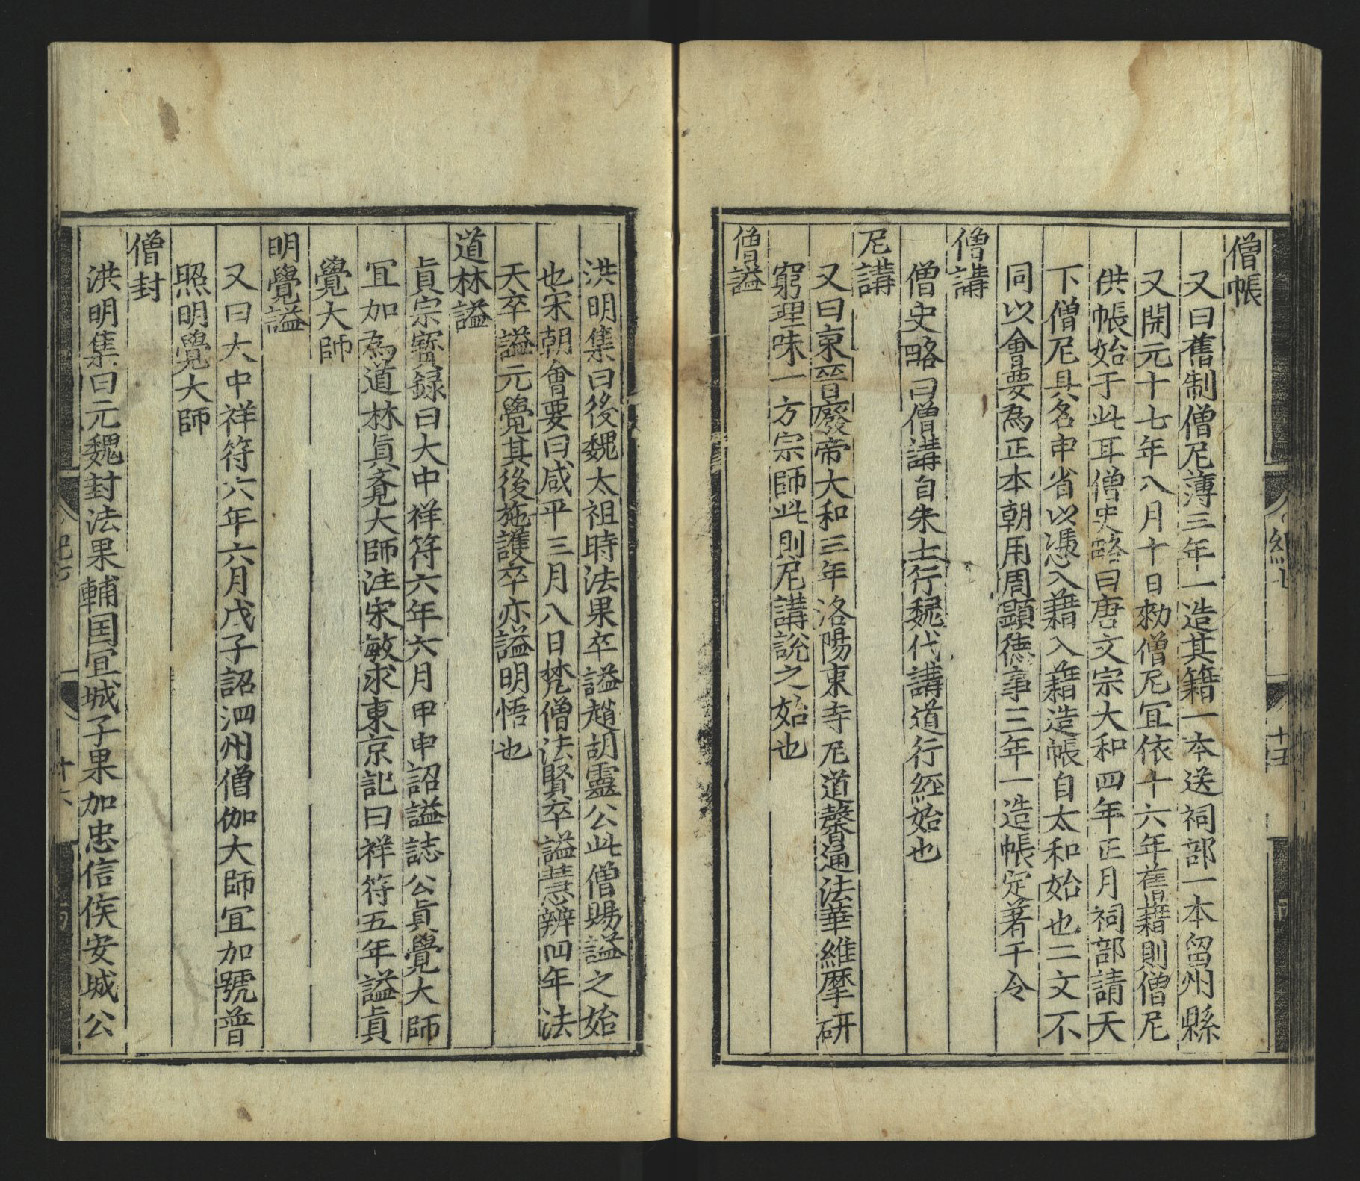 僧帳
又曰舊制僧尼薄三年一造其籍一本送祠部一本留州縣
又開元十七年八月十日勑僧尼冝依十六年舊籍則僧尼
供帳始于此耳僧史略曰唐文宗大和四年正月祠部請天
下僧尼具名申省以憑入籍入籍造帳自太和始也二文不
同以會要為正本朝用周顯德事三年一造帳定著于令
僧講
僧史略曰僧講自朱士行魏代講道行經始也
尼講
又曰東晉廢帝大和三年洛陽東寺尼道馨通法華維摩研
窮理味一方宗師此則尼講說之始也
僧謚
洪明集曰後魏太祖時法果卒謚趙胡靈公此僧賜謚之始
也宋朝會要曰咸平三月八日梵僧法賢卒謚慧辨四年法
天卒謚元覺其後施護卒亦謚明悟也
道林謚
真宗寶録曰大中祥符六年六月甲申詔謚誌公真覺大師
冝加為道林真覺大師注宋敏求東京記曰祥符五年謚真
覺大師
明覺謚
又曰大中祥符六年六月戊子詔泗州僧伽大師冝加號普
照明覺大師
僧封
洪明集曰元魏封法果輔国冝城子果加忠信侯安城公
紀七
十五
紀七
十六